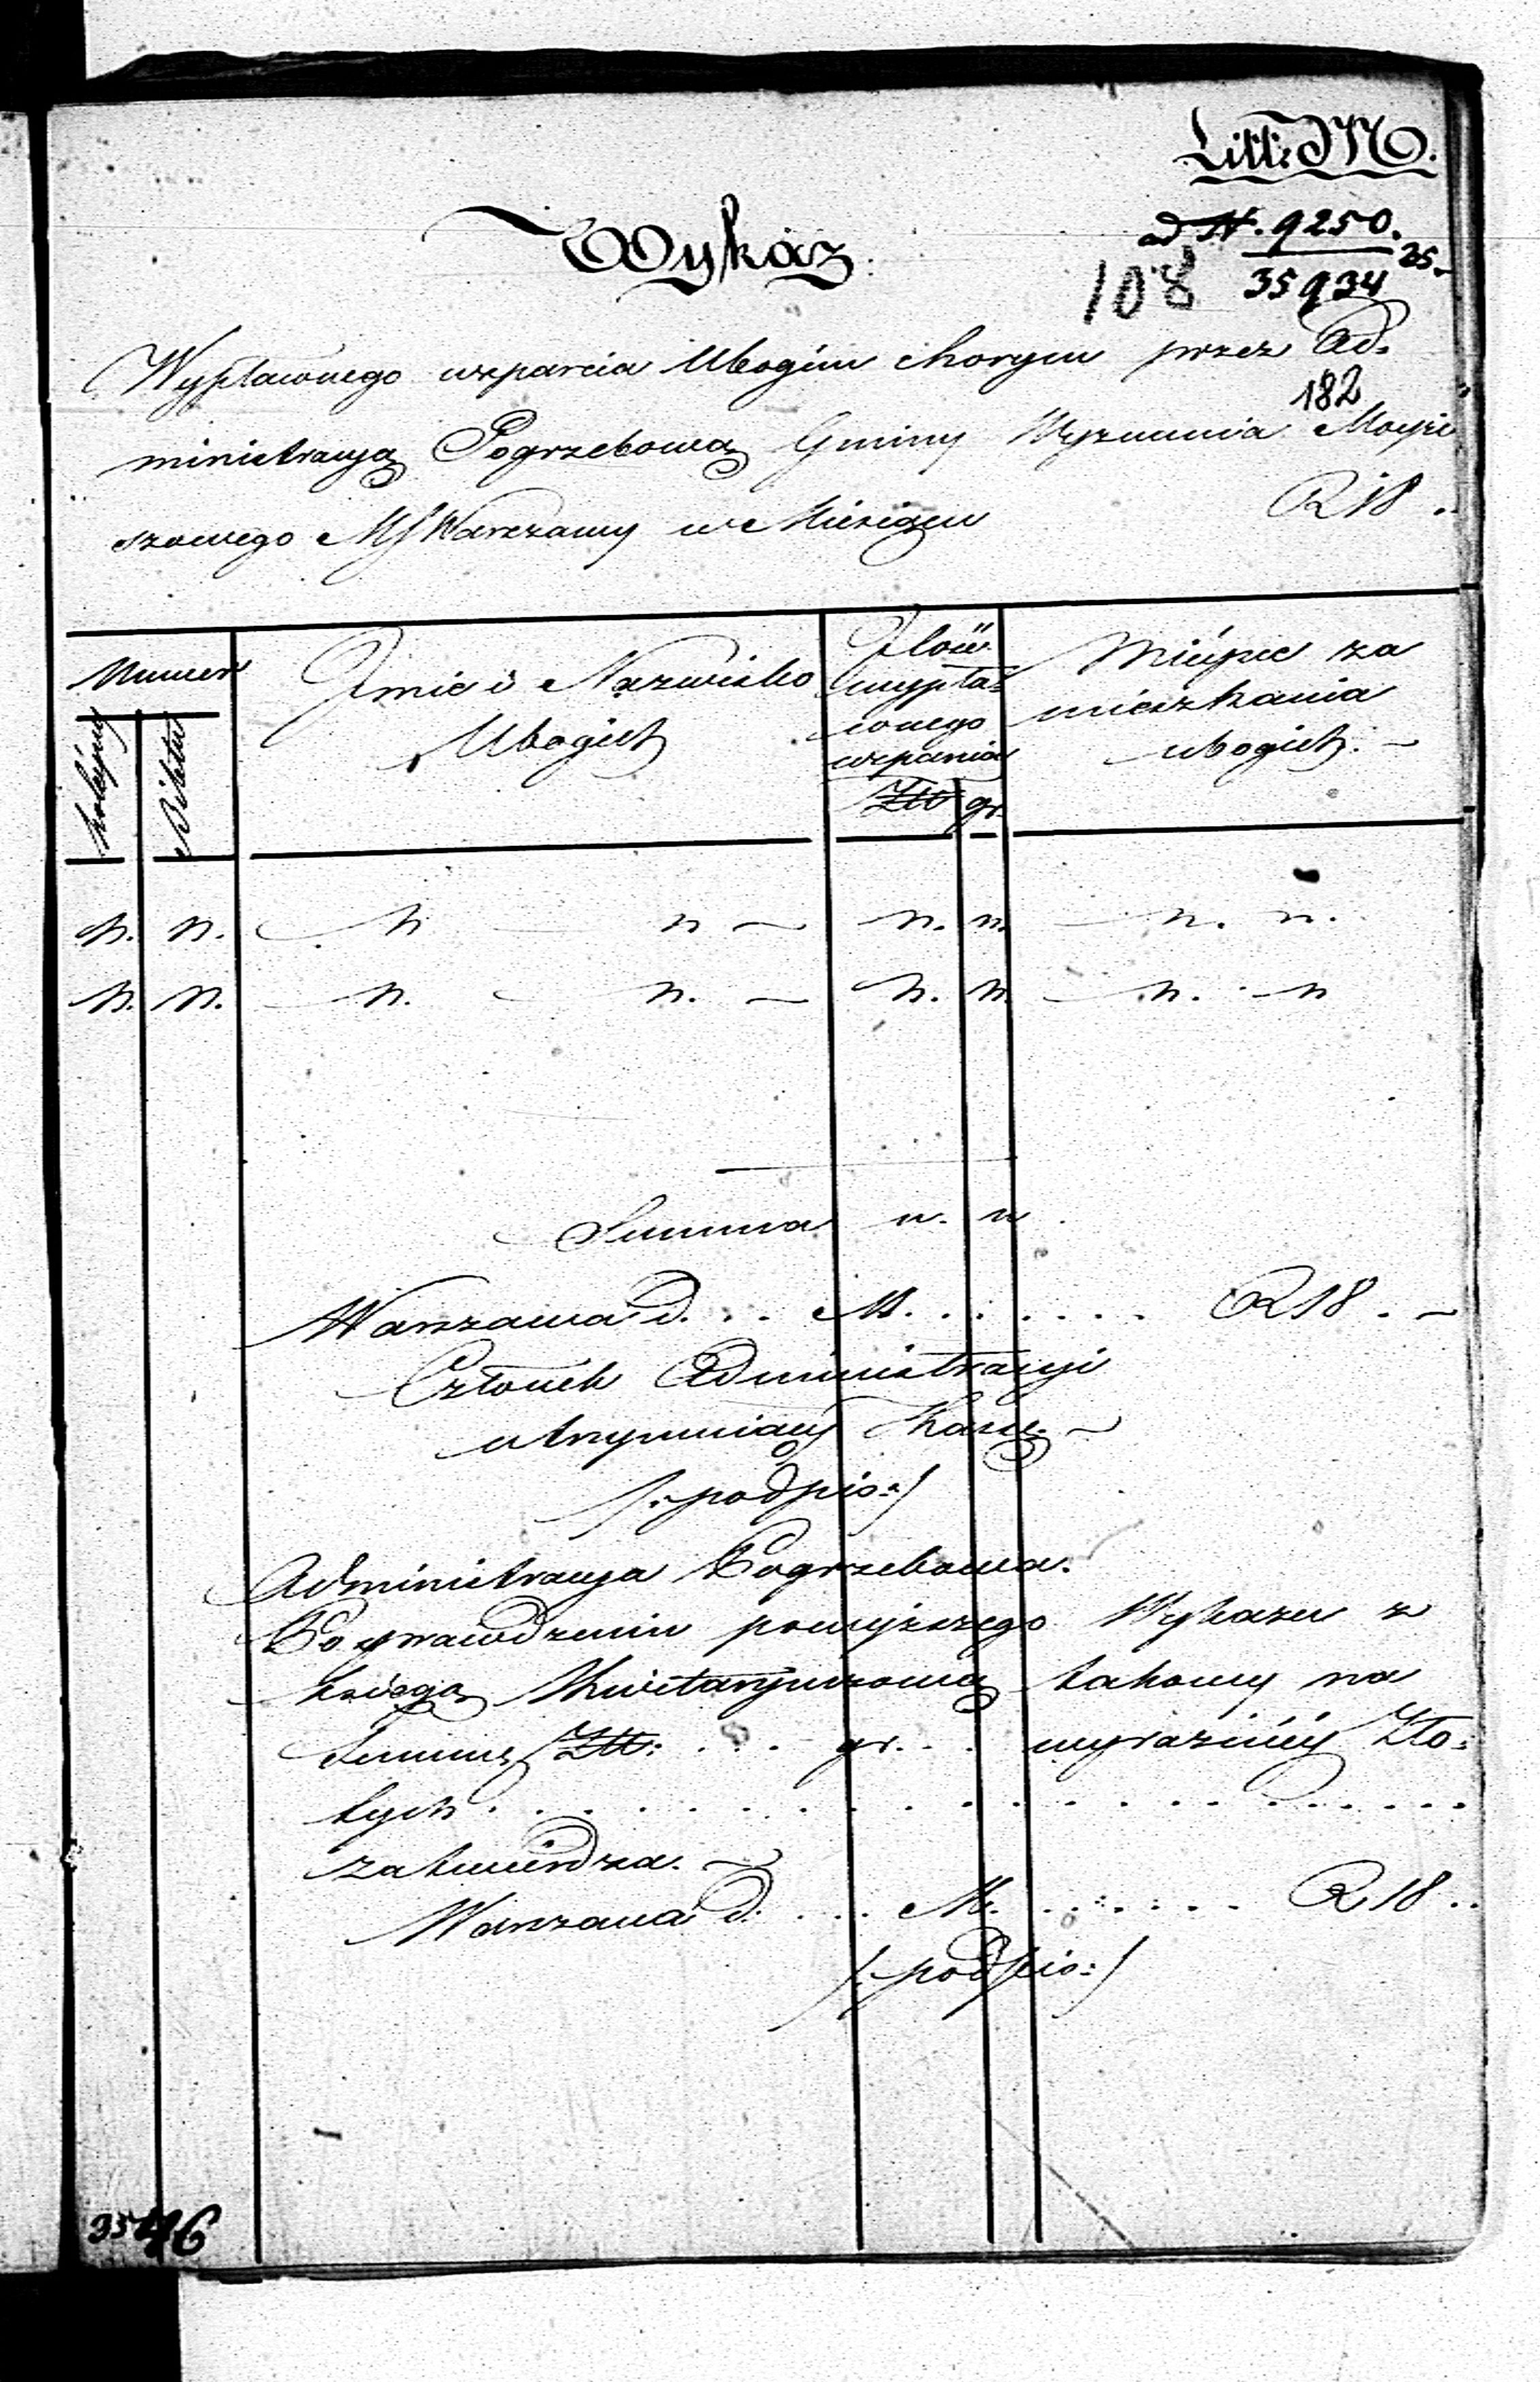 Litt: M.
ad N. 9250.
35934 25.
108
Wykaz
Wypłaconego wsparcia Ubogim chorym przez Ad=
182
ministracyą Pogrzebową Gminy Wyznania Moyże
szowego M S Warszawy w Miesiącu R 18 ..
Numer
kolejny
Biletu
Imie i Nazwisko
Ubogich
Ilość
wypła=
conego
wsparcia
Zł gr.
Miéysce za
mieszkania
ubogich. —
N. N. N n — n. n. n. n.
N. N. N. n. — N. N. n. n
Summa n. n
Warszawa d. . . M. . . . . . . R 18 . —
Członek Administracyi
utrzymuiący Kassę. —
/: podpis :/
Administracya Pogrzebowa.
Po sprawdzeniu powyższego Wykazu z
księgą Kwitaryuszową takowy na
Summę Zł: . . . gr. . . wyraźniéy Zło=
tych . . . . . . . . . . . . . . . . . .
zatwierdza. —
Warszawa d. . . . M. . . . . . . R 18 ..
/: podpis :/